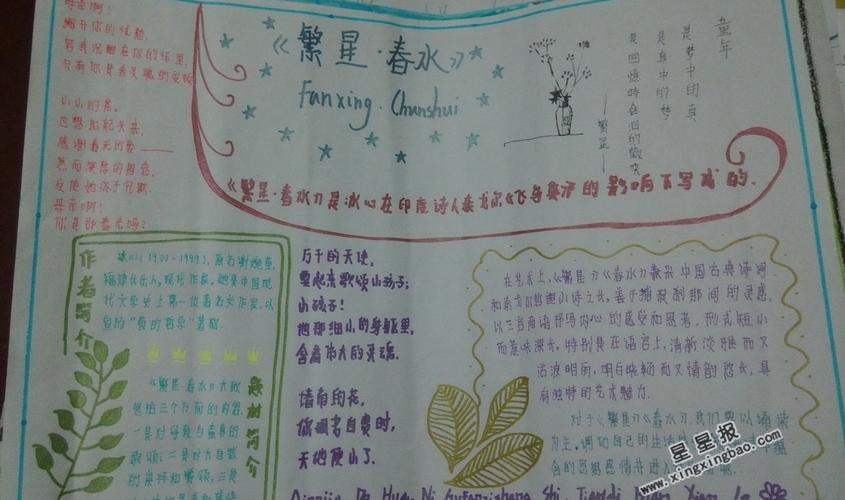 母亲啊！
撇开你的忧愁，
容我沉酣在你的怀里，
只有你是我灵魂的安顿
小小的花，
也想抬起头来，
感谢春光的爱——
然而深厚的恩慈，
反使她终于沉默。
母亲啊！
你是那春光吗？
《繁星·春水》
Fanxing·Chunshui
童年
是梦中的真
是真中的梦
是回忆时含泪的微笑
——繁星
《繁星·春水》是冰心在印度诗人泰戈尔《飞鸟集》的影响下写成的.
作者简介
冰心(1900-1999),原名谢婉莹,
福建长乐人,现代作家,她是中国现
代文学史上第一位著名女作家,以
宣扬“爱的哲学”著称
题材简介
《繁星·春水》大致
包括三个方面的内容.
一是对母爱与童真的
歌颂；二是对大自然
的崇拜和赞颂；三是
万千的天使，
要起来歌颂小孩子；
小孩子！
他那细小的身躯里，
含着伟大的灵魂.
墙角的花，
你孤芳自赏时，
天地便小了.
在艺术上,《繁星》《春水》兼采中国古典诗词
和泰戈尔哲理小诗之长,善于捕捉刹那间的灵感,
以三言两语抒写内心的感受和思考.形式短小
而意味深长.特别是在语言上,清新淡雅而又
晶莹明丽,明白晓畅而又情韵悠长,具
有独特的艺术魅力.
对于《繁星》《春水》,我们要以诵读
为主,调动自己的生活
含的思想感情并进入
星星报
www.xingxingbao.com